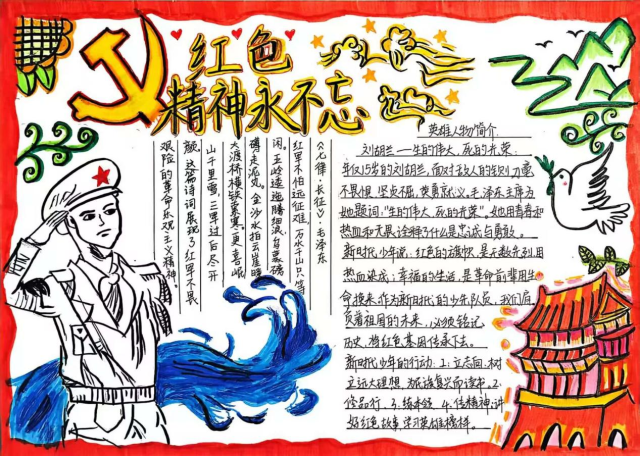 红色
精神永不忘
《七律·长征》毛泽东
红军不怕远征难,万水千山只等
闲。五岭逶迤腾细浪,乌蒙磅
礴走泥丸。金沙水拍云崖暖
大渡桥横铁索寒。更喜岷
山千里雪,三军过后尽开
颜。这篇诗词展现了红军不畏
艰险的革命乐观主义精神。
英雄人物简介
刘胡兰一生的伟大,死的光荣
年仅15岁的刘胡兰,面对敌人的铡刀,毫
不畏惧,坚贞不屈,英勇就义。毛泽东主席为
她题词:"生的伟大,死的光荣"。她用青春和
热血和无畏诠释了什么是忠诚与勇敢。
新时代少年说:红色的旗帜,是无数先烈用
热血染成;幸福的生活,是革命前辈用生
命换来。作为新时代的少年队员,我们肩
负着祖国的未来,必须铭记
历史,将红色基因传承下去。
新时代少年的行动:1、立志向:树
立远大理想,为民族复兴而读书。2、
修品行、3、练本领、4、传精神:讲
好红色故事,学习英雄榜样。